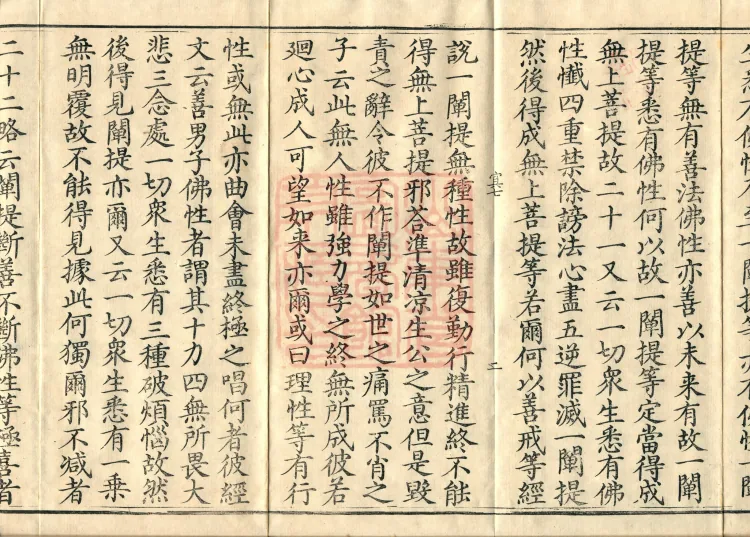 提等無有善法佛性亦善以未来有故一闡
提等悉有佛性何以故一闡提等定當得成
無上菩提故二十一又云一切衆生悉有佛
性懺四重禁除謗法心盡五逆罪滅一闡提
然後得成無上菩提等若爾何以善戒等經
二
說一闡提無種性故雖復勤行精進終不能
得無上菩提邪荅準清凉生公之意但是毀
責之辭令彼不作闡提如世之痛罵不肖之
子云此無人性雖強力學之終無所成彼若
廻心成人可望如来亦爾或曰理性等有行
性或無此亦曲會未盡終極之唱何者彼經
文云善男子佛性者謂其十力四無所畏大
悲三念處一切衆生悉有三種破煩惱故然
後得見闡提亦爾又云一切衆生悉有一乗
無明覆故不能得見據此何獨爾邪不减者
二十二略云闡提斷善不斷佛性等極喜者